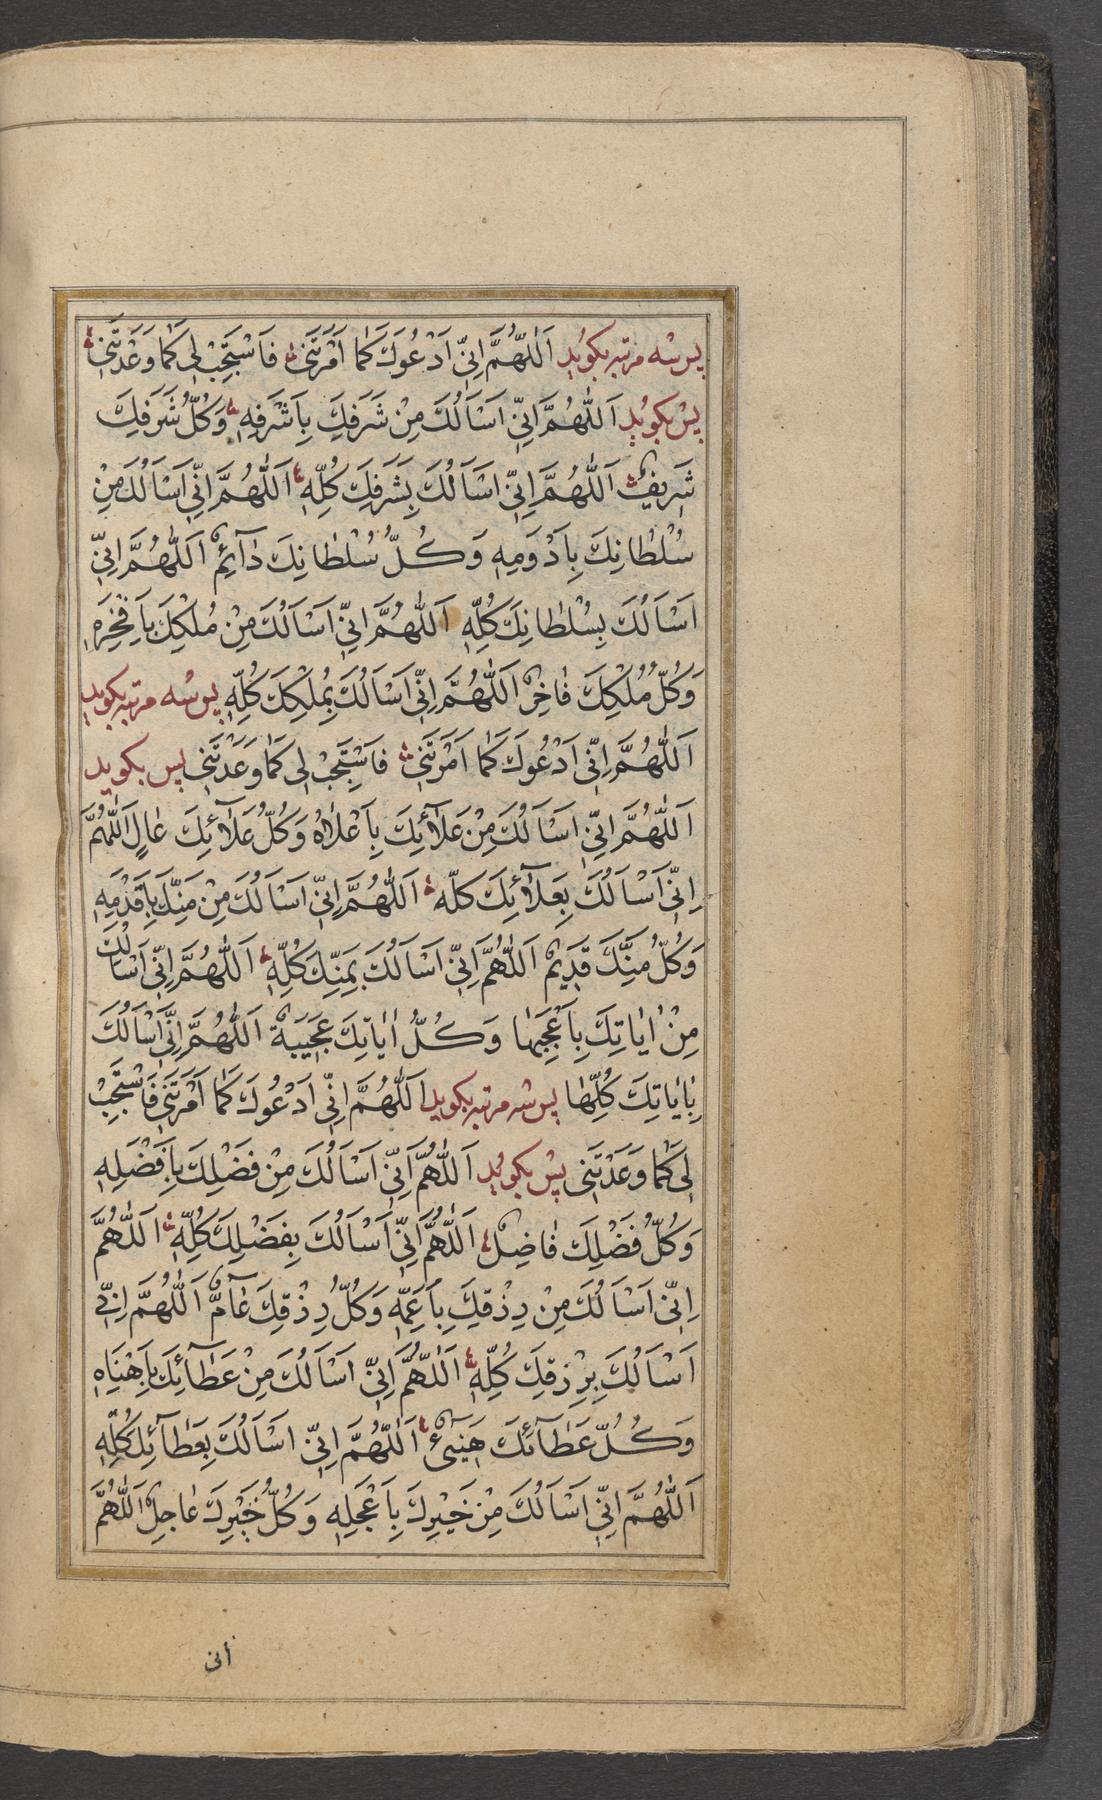 پس سه مرتبه بکوید اَللّٰهُمَّ اِنّی اَدْعُوكَ كَمٰا اَمَرْتَنی فَاسْتَجِبْ لی كَمٰا وَعَدْتَنی
پس بکوید اَللّٰهُمَّ اِنّی اَسْاَلُكَ مِنْ شَرَفِكَ بِاَشْرَفِهِ وَكُلُّ شَرَفِكَ
شَریفٌ اَللّٰهُمَّ اِنّی اَسْاَلُكَ بِشَرَفِكَ كُلِّهِ اَللّٰهُمَّ اِنّی اَسْاَلُكَ مِنْ
سُلْطٰانِكَ بِاَدْوَمِهِ وَكُلُّ سُلْطٰانِكَ دٰآئِمٌ اَللّٰهُمَّ اِنّی
اَسْاَلُكَ بِسُلْطٰانِكَ كُلِّهِ اَللّٰهُمَّ اِنّی اَسْاَلُكَ مِنْ مُلْكِكَ بِاَفْخَرِهِ
وَكُلُّ مُلْكِكَ فٰاخِرٌ اَللّٰهُمَّ اِنّی اَسْاَلُكَ بِمُلْكِكَ كُلِّهِ پس سه مرتبه بکوید
اَللّٰهُمَّ اِنّی اَدْعُوكَ كَمٰا اَمَرْتَنی فَاسْتَجِبْ لی كَمٰا وَعَدْتَنی پس بکوید
اَللّٰهُمَّ اِنّی اَسْاَلُكَ مِنْ عَلآئِكَ بِاَعْلاٰهُ وَكُلُّ عَلآئِكَ عٰالٍ اَللّٰهُمَّ
اِنّی اَسْاَلُكَ بِعَلآئِكَ كُلِّه اَللّٰهُمَّ اِنّی اَسْاَلُكَ مِنْ مَنِّكَ بِاَقْدَمِهِ
وَكُلُّ مَنِّكَ قَدیمٌ اَللّٰهُمَّ اِنّی اَسْاَلُكَ بِمَنِّكَ كُلِّهِ اَللّٰهُمَّ اِنّی اَسْاَلُكَ
مِنْ اٰیٰاتِكَ بِاَعْجَبِهٰا وَكُلُّ اٰیٰاتِكَ عَجیبَةٌ اَللّٰهُمَّ اِنّی اَسْاَلُكَ
بِاٰیٰاتِكَ كُلِّهٰا پس سه مرتبه بکوید اَللّٰهُمَّ اِنّی اَدْعُوكَ كَمٰا اَمَرْتَنی فَاسْتَجِبْ
لی كَمٰا وَعَدْتَنی پس بکوید اَللّٰهُمَّ اِنّی اَسْاَلُكَ مِنْ فَضْلِكَ بِاَفْضَلِهِ
وَكُلُّ فَضْلِكَ فٰاضِلٌ اَللّٰهُمَّ اِنّی اَسْاَلُكَ بِفَضْلِكَ كُلِّهِ اَللّٰهُمَّ
اِنّی اَسْاَلُكَ مِنْ رِزْقِكَ بِاَعَمِّهِ وَكُلُّ رِزْقِكَ عٰآمٌّ اَللّٰهُمَّ اِنّی
اَسْاَلُكَ بِرِزْقِكَ كُلِّهِ اَللّٰهُمَّ اِنّی اَسْاَلُكَ مِنْ عَطٰآئِكَ بِاَهْنَاِهِ
وَكُلُّ عَطٰآئِكَ هَنیٓیءٌ اَللّٰهُمَّ اِنّی اَسْاَلُكَ بِعَطٰآئِكَ كُلِّهِ
اَللّٰهُمَّ اِنّی اَسْاَلُكَ مِنْ خَیْرِكَ بِاَعْجَلِهِ وَكُلُّ خَیْرِكَ عٰاجِلٌ اَللّٰهُمَّ
انی